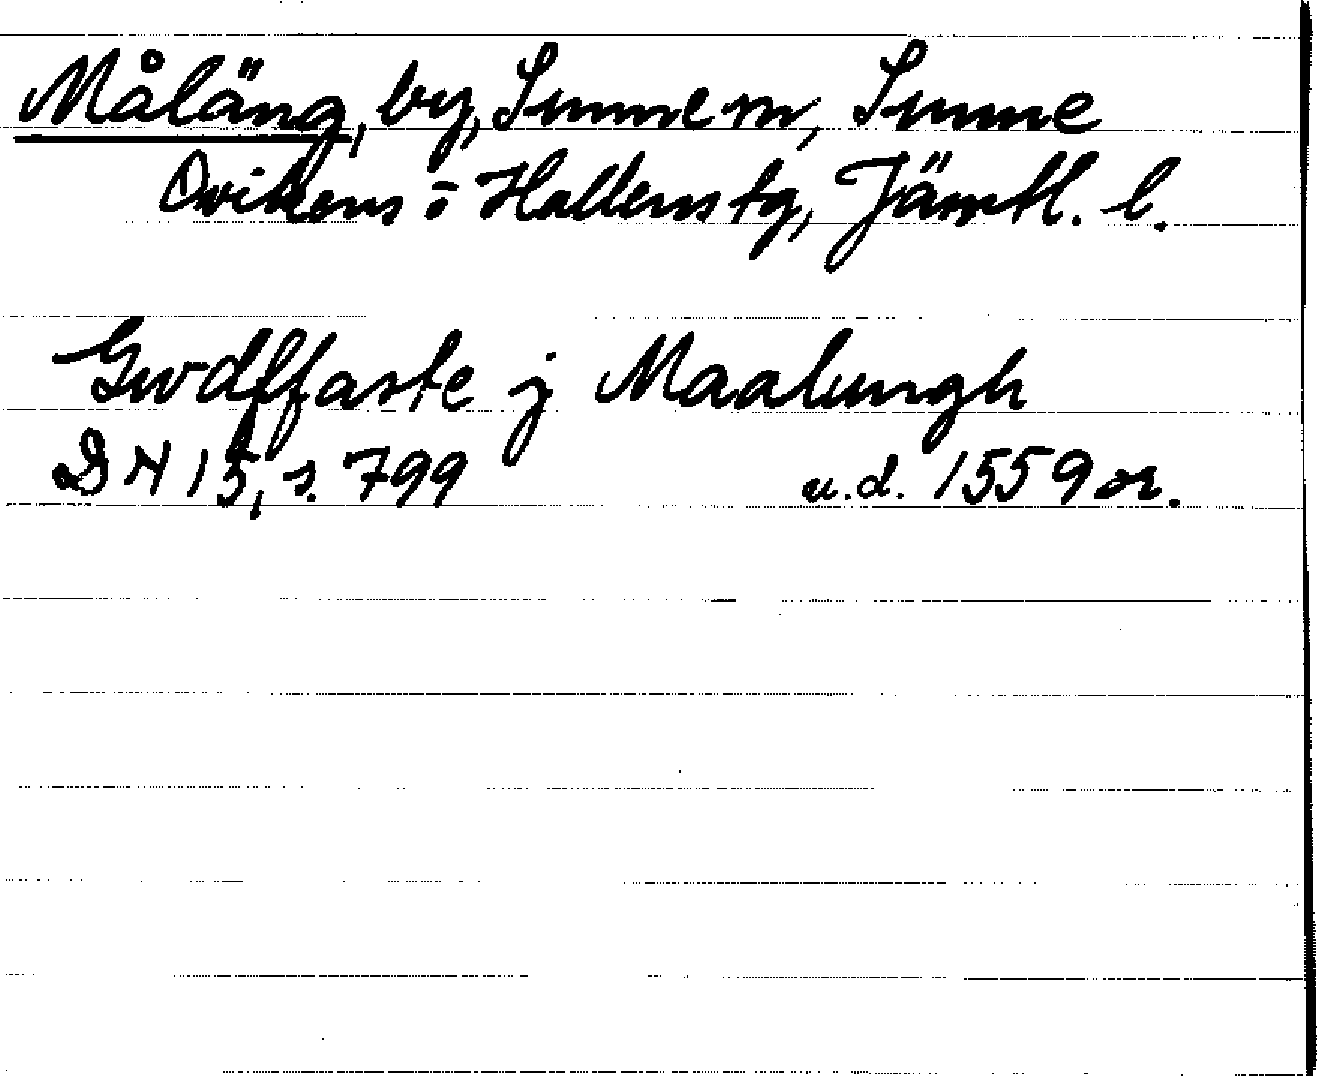 Måläng, by, Sunne sn, Sunne
Ovikens o Hallens tg, Jämtl. l.
Gwdffaste j Maalungh
DN 15, s. 799 u.d. 1559 or.